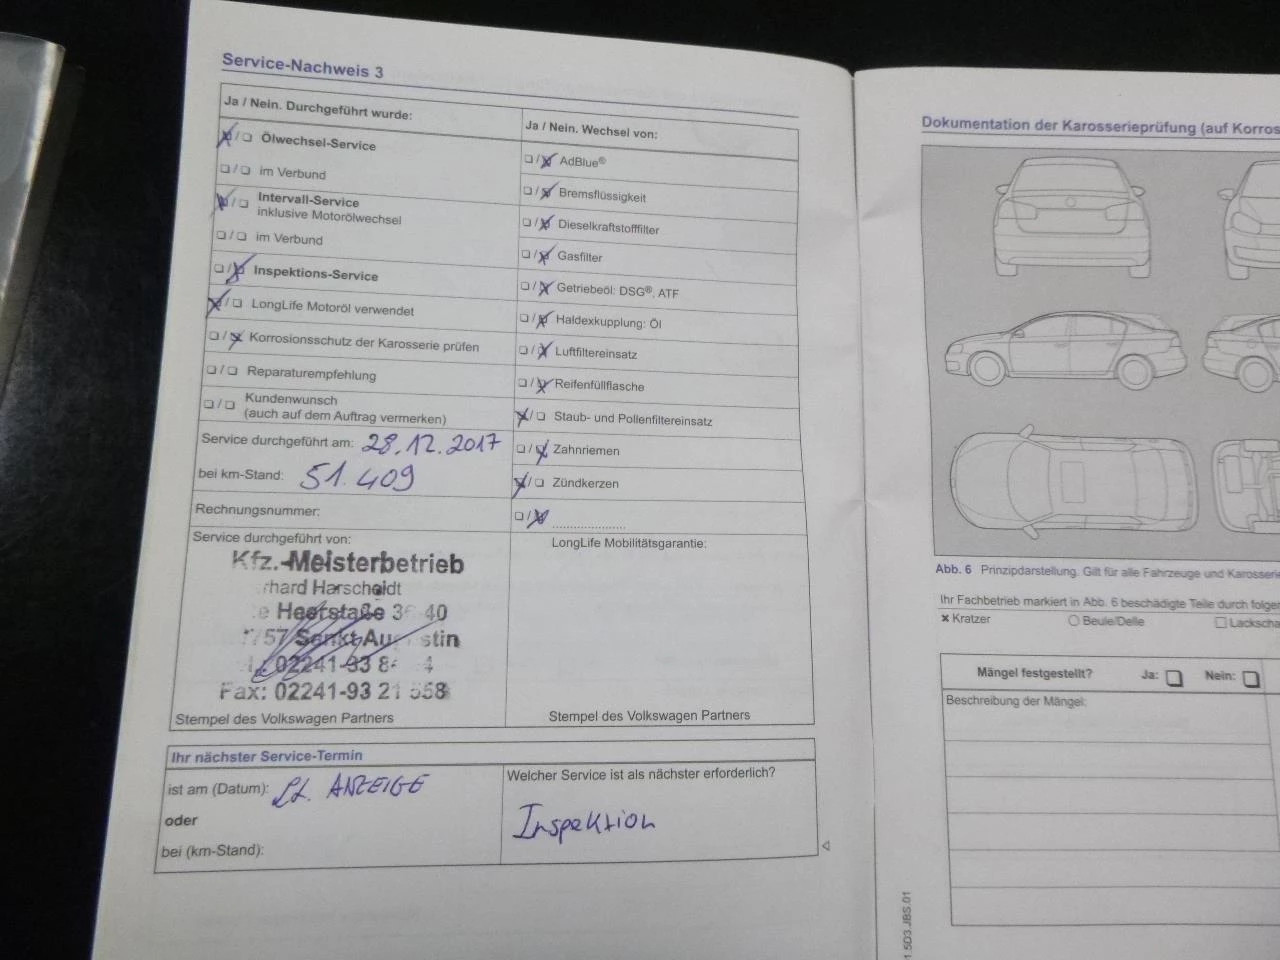 Service-Nachweis 3
Ja / Nein. Durchgeführt wurde:
Ölwechsel-Service
im Verbund
Intervall-Service
inklusive Motorölwechsel
im Verbund
Inspektions-Service
LongLife Motoröl verwendet
Korrosionsschutz der Karosserie prüfen
Reparaturempfehlung
Kundenwunsch
(auch auf dem Auftrag vermerken)
Service durchgeführt am: 28.12.2017
bei km-Stand: 51.409
Rechnungsnummer:
Service durchgeführt von:
Kfz.-Meisterbetrieb
Harscheidt
02241-93
Fax: 02241-93 21 558
Stempel des Volkswagen Partners
Ja / Nein. Wechsel von:
AdBlue®
Bremsflüssigkeit
Dieselkraftstofffilter
Gasfilter
Getriebeöl: DSG®, ATF
Haldexkupplung: Öl
Luftfiltereinsatz
Reifenfüllflasche
Staub- und Pollenfiltereinsatz
Zahnriemen
Zündkerzen
LongLife Mobilitätsgarantie:
Stempel des Volkswagen Partners
Ihr nächster Service-Termin
ist am (Datum): Lt. ANZEIGE
oder
bei (km-Stand):
Welcher Service ist als nächster erforderlich?
Inspektion
Dokumentation der Karosserieprüfung (auf Korros
Abb. 6 Prinzipdarstellung. Gilt für alle Fahrzeuge und Karosserie
Ihr Fachbetrieb markiert in Abb. 6 beschädigte Teile durch folgen
Kratzer
Beule/Delle
Lackscha
Mängel festgestellt? Ja: Nein:
Beschreibung der Mängel:
1.5D3.JBS.01